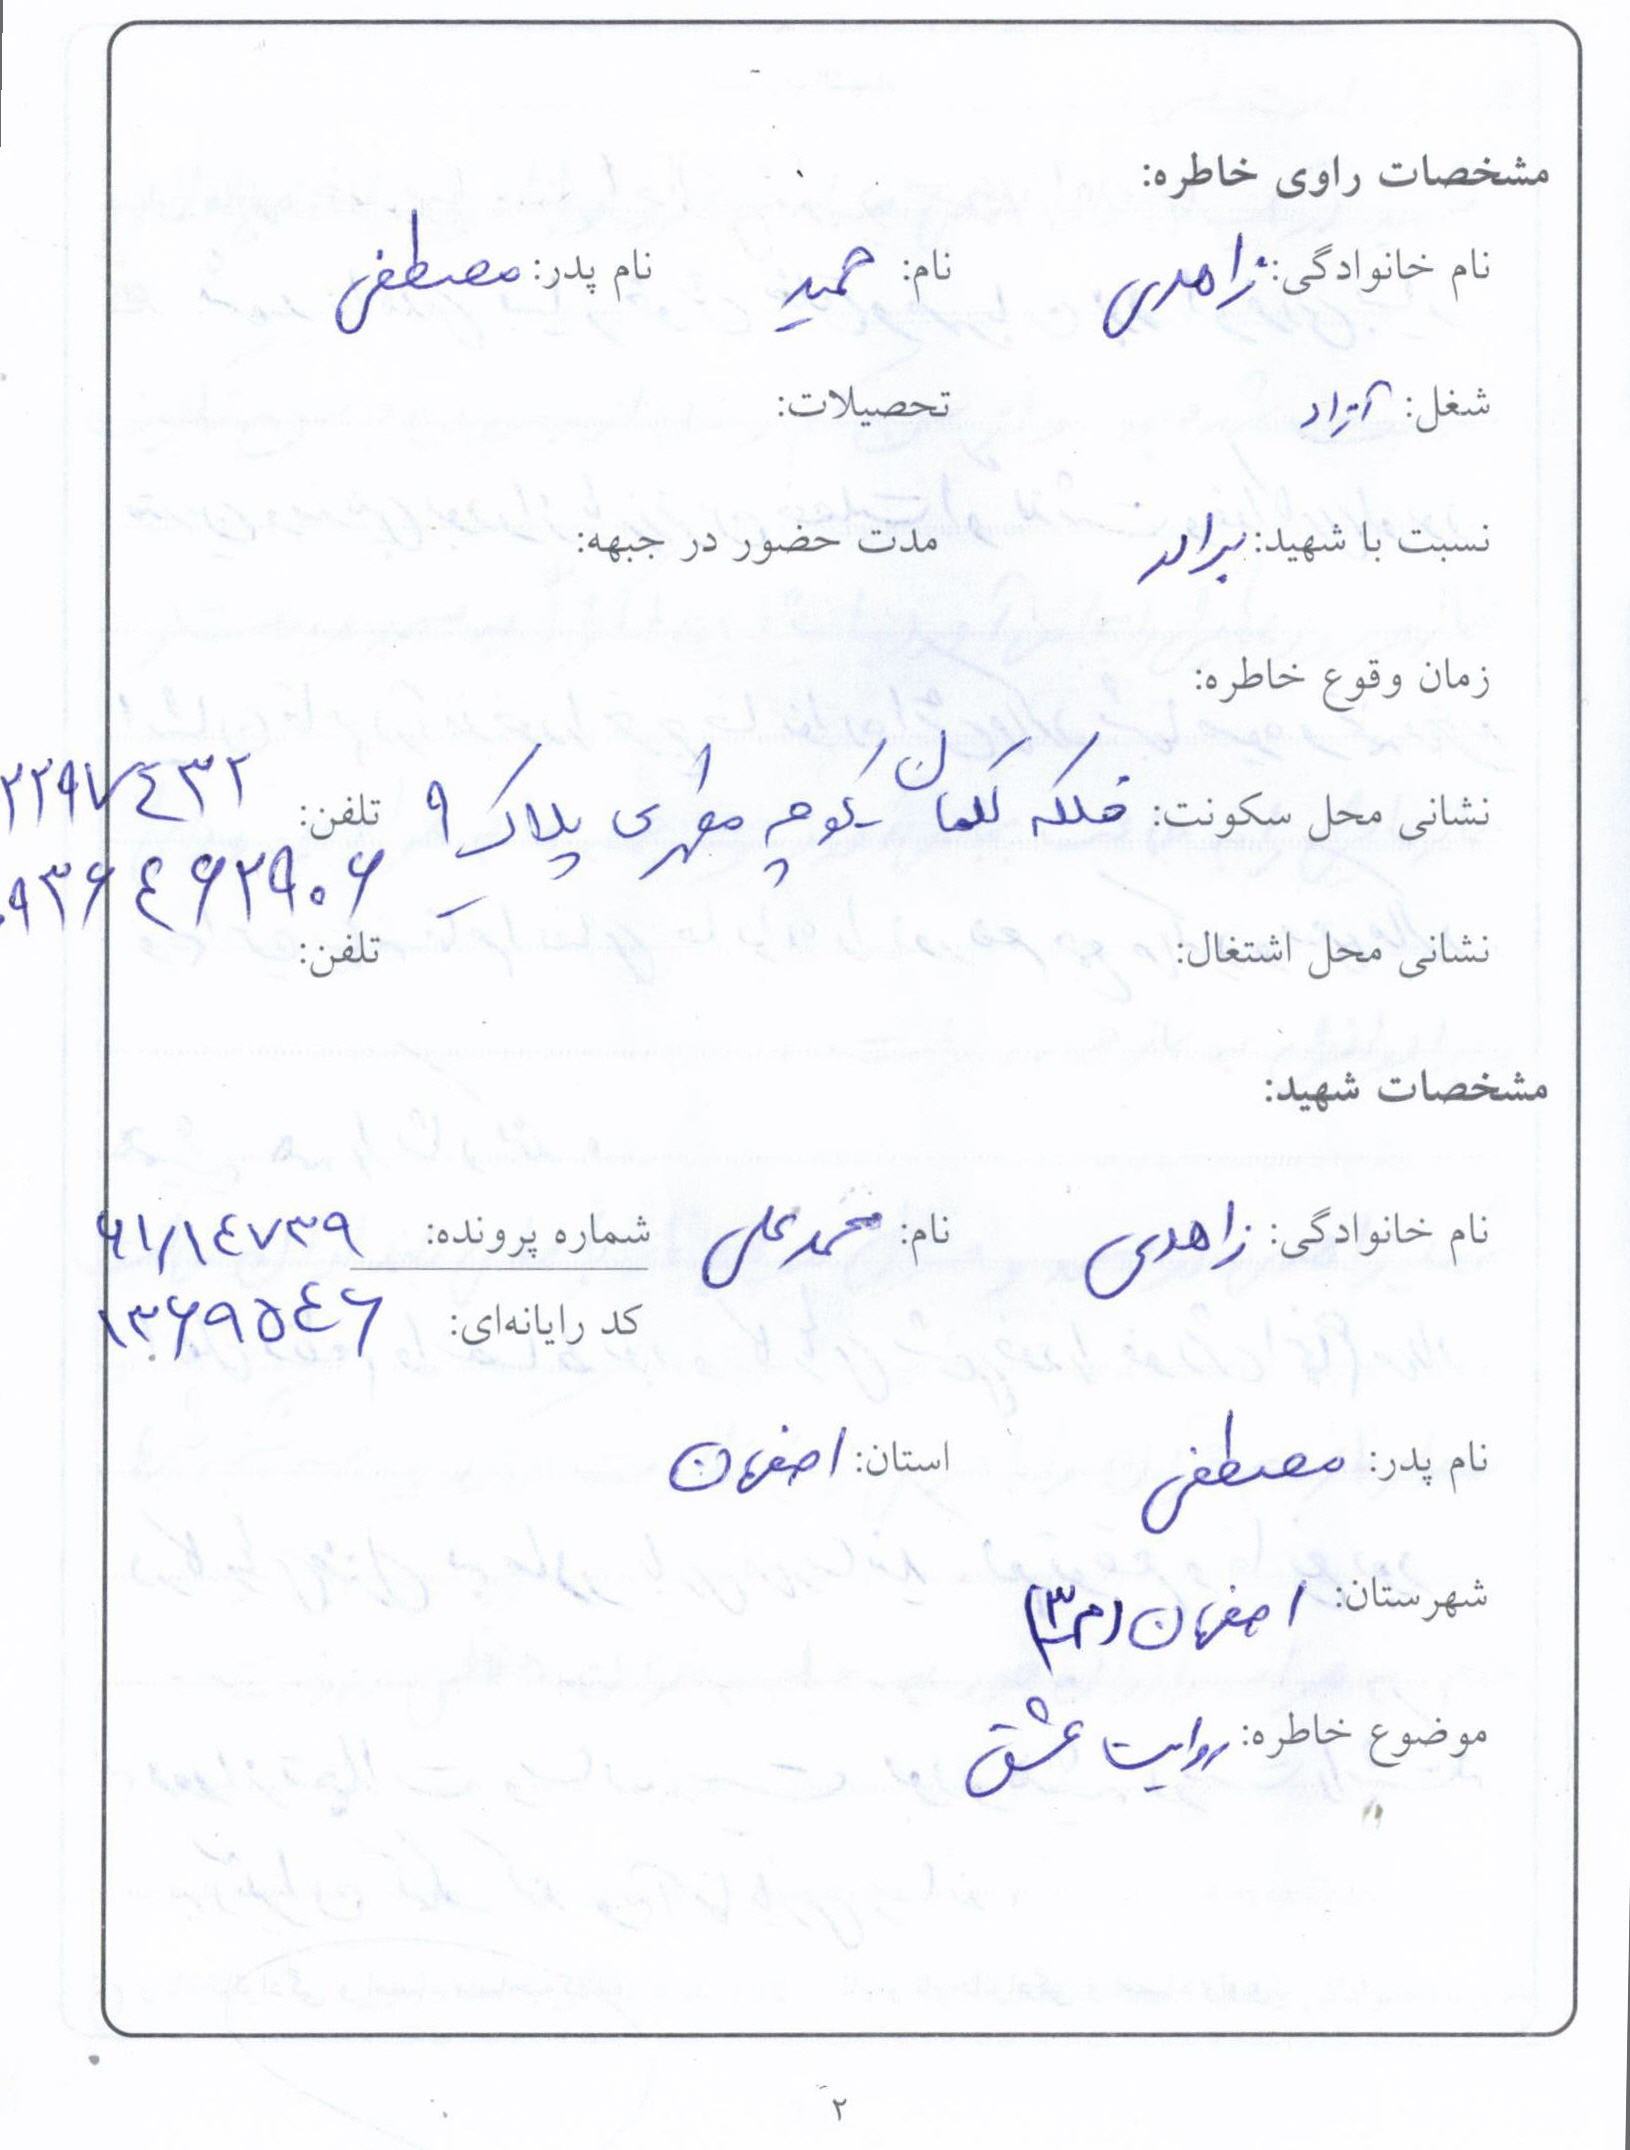 مشخصات راوی خاطره:
نام خانوادگی: زاهدی نام: حمید نام پدر: مصطفی
شغل: آزاد تحصیلات:
نسبت با شهید: برادر مدت حضور در جبهه:
زمان وقوع خاطره:
نشانی محل سکونت: فلکه کوچه مطهری پلاک ۹ تلفن: ۲۲۹۷۴۳۲
۰۹۳۶۴۶۲۹۰۶
نشانی محل اشتغال: تلفن:
مشخصات شهید:
نام خانوادگی: زاهدی نام: محمدعلی شماره پرونده: ۶۱/۱۴۷۳۹
کد رایانه‌ای: ۱۳۶۹۵۴۶
نام پدر: مصطفی استان: اصفهان
شهرستان: اصفهان (م۳)
موضوع خاطره: روایت عشق
۲